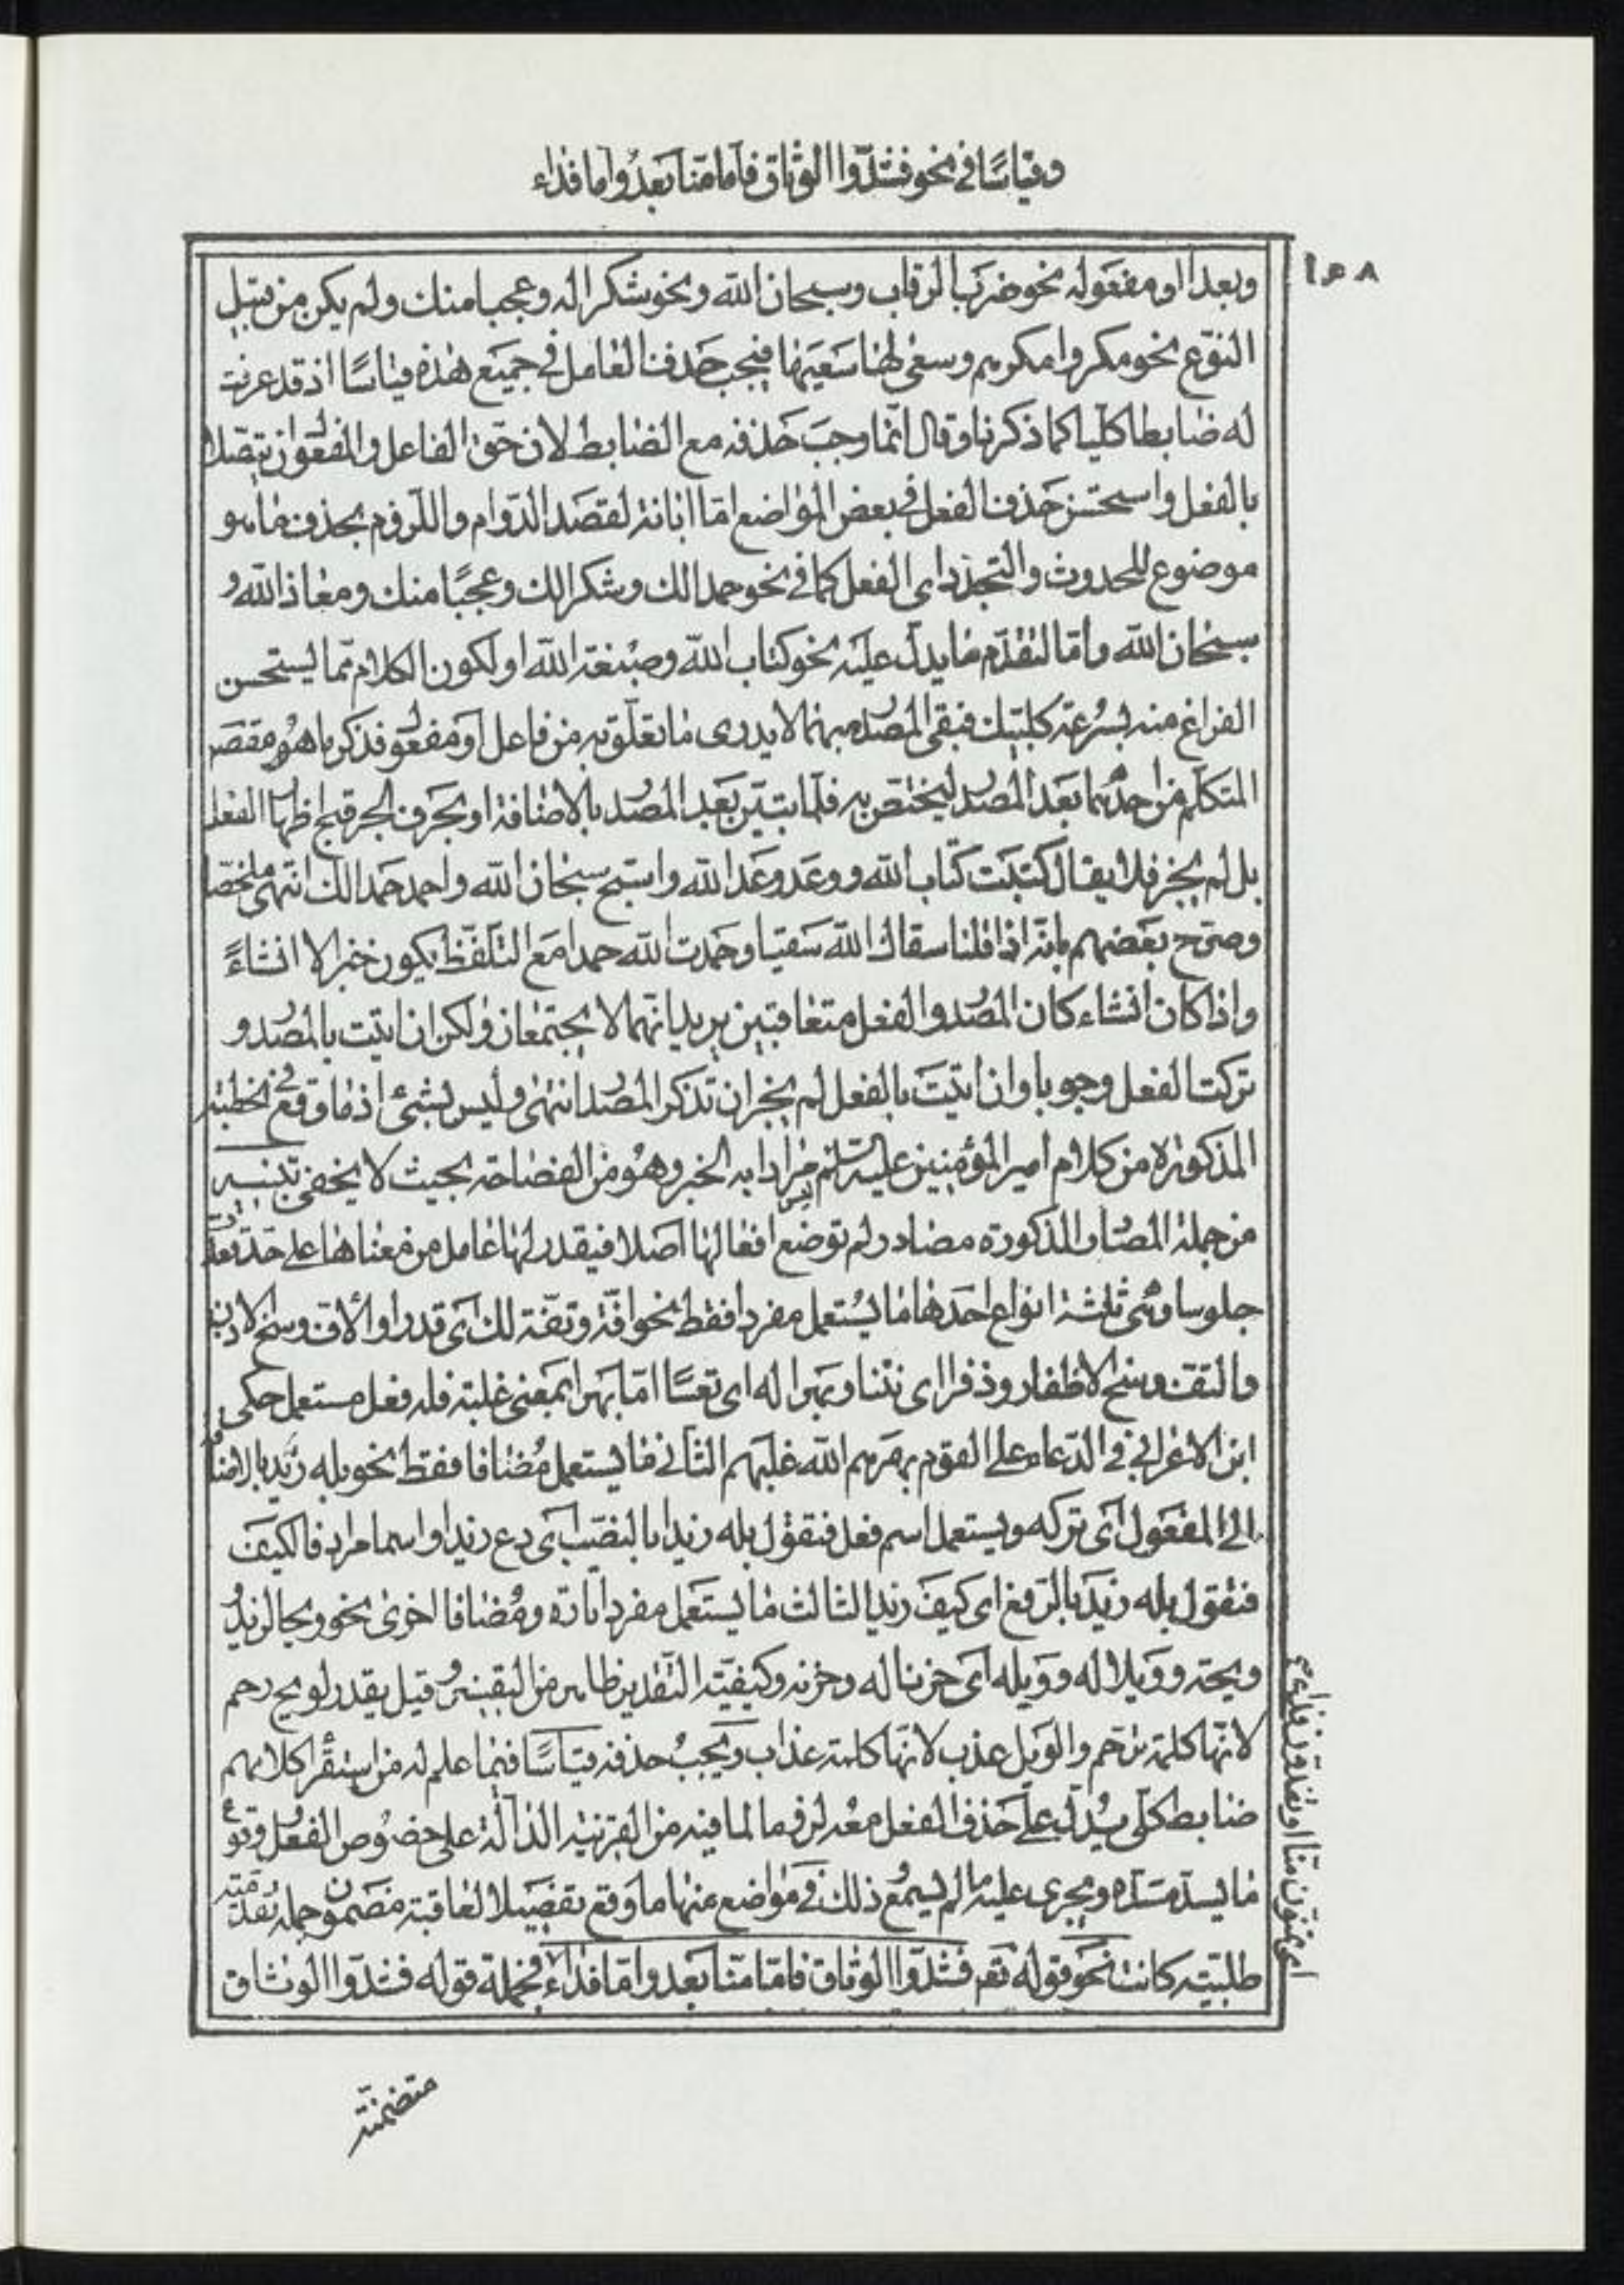 وقياسًا في نحو فشدّوا الوثاق فامّا منّا بعدُ وامّا فداء
١٥٨
وبعدا او مفعوله نحو ضربَ الرقاب وسبحان الله ونحو شكرا له وعجبا منك ولم يكن من قبيل
النوع نحو مكروا مكرهم وسعى لها سَعيَها فيجب حَذف العامل في جميَع هذه قياسًا اذ قد عرفت
له ضابطا كليا كما ذكرنا وقال انّما وجبَ حَذفه مع الضابط لان حقّ الفاعل والمفعول ان يتّصلا
بالفعل واستحسَن حَذف الفعل في بعض المواضع امّا ابانة لقصَد الدّوام واللّزوم بحذف ما هو
موضوع للحدوث والتجدّد اى الفعل كما في نحو حمدا لك وشكرا لك وعجبًا منك ومعاذ الله و
سبحان الله وامّا لتقدّم ما يدلّ عليَه نحو كتاب الله وصبغة الله او لكون الكلام ممّا يستحسن
الفراغ منه بسُرعة كلبّيك فبقى المصدر مبهما لا يدرى ما تعلّق به من فاعل او مفعول فذكر ما هُو مقصَود
المتكلّم من احدهما بعَد المصدر ليختصّ به فلمّا تبيّن بعَد المصدر بالاضافة او بحَرف الجر قبح اظهار الفعل
بل لم يجز فلا يقال كتَبَ كتابَ الله ووعَد وعَد الله واسبّح سبحان الله واحمد حَمدا لك انتهى ملخّصا
وصرّح بعَضهم بانّه اذا قلنا سقاك الله سَقيا وحَمدت الله حمدا مَع التلفّظ يكون خبرا لا انشاءً
واذا كان انشاء كان المصدر والفعل متعاقبين يريد انّهما لا يجتمعان ولكن ان اتيت بالمصدر و
تركت الفعل وجوبا وان اتيَت بالفعل لم يجز ان تذكر المصدر انتهى وليس بشئ اذ ما وقع في خطبته
المذكورة من كلام امير المؤمنين عليه السّلم مرادا به الخبر وهو من الفصاحة بحيث لا يخفى تنبيه
من جملة المصادر المذكورة مصادر لم توضع افعالها اصلا فيقدر لها عامل من معناها على حدّ قعد
جلوسا وهى ثلثة انواع احدها ما يُستعمل مفردا فقط نحو افّة وتفّة لك اى قدرا والافّ وسخ الاذن
والتف وسخ الاظفار وذفرا اى نتنا وبهرا له اى تعسًا امّا بهرا بمعنى غلبته فله فعل مستعمل حكى
ابن الاعرابي في الدّعاء على القوم بهرهم الله غلبهم الثاني ما يستعمل مُضافا فقط نحو بله زيد بالاضافة
الى المفعول اى تركه ويستعمل اسم فعل فتقول بله زيدا بالنصَب اى دع زيدا واسما مرادفا لكيَف
فتقول بله زيَد بالرّفع اى كيف زيد الثالث ما يستعمَل مفردا تارة ومُضافا اخرى نحو ويحا لزيد
ويحه وويلا له وويله اى حزنا له وحزنه وكيفيّة التقدير ظاهر من التفسير وقيل يقدر لويح رحم
لانّها كلمة ترحّم والويل عذب لانّها كلمة عذاب ويَجبُ حذفه قياسًا فيما علم له من استقراء كلامهم
ضابط كلّى يدلّ على حَذف الفعل معه لزوما لما فيه من القرينة الدّالّة على خصُوص الفعل وقوع
ما يسدّ مسدّه ويجرى عليه ما لم يسمع ذلك في مواضع منها ما وقع تفصيلا لعاقبة مضمون جملة متقدّمة
طلبيّة كانت نحو قوله تع فشدّوا الوثاق فامّا منّا بعد وامّا فداء فجملة قوله فشدّوا الوثاق
اى تمنّون منّا او تفدون فداء
متضمّنة